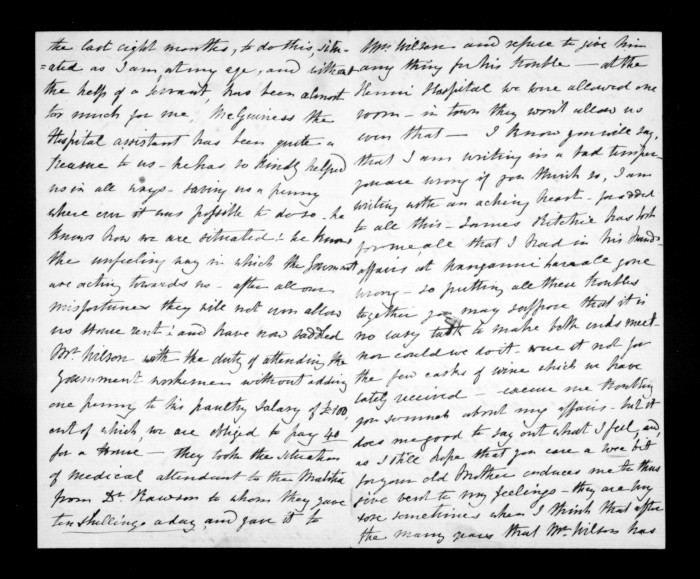 the last eight months, to do this, situ-
=ated as I am, at my age, and without
the help of a servant, has been almost
too much for me. McGuiness the
Hospital assistant has been quite a
treasure to us - he has so kindly helped
us in all ways - saving us a penny
where ever it was possible to do so - he
knows how we are situated: he knows
the unfeeling way in which the Government
are acting towards us - after all our
misfortunes they will not even allow
us House rent: and have now saddled
Mr. Wilson with the duty of attending the
Government workmen without adding
one penny to his paultry salary of £100
out of which, we are obliged to pay 40
for a House - they took the situation
of medical attendant to the Militia
from Dr. Rawson to whom they gave
ten shillings a day, and gave it to
Mr. Wilson and refuse to give him
any thing for his trouble - at the
Henui Hospital we were allowed one
room - in town they won't allow us
even that - I know you will say,
that I am writing in a bad temper
you are wrong if you think so, I am
writing with an aching heart - for added
to all this - James Ritchie has lost
for me, all that I had in his hands -
affairs at have all gone
wrong - so putting all these troubles
together you may suppose that it is
no easy task to make both ends meet -
nor could we do it - were it not for
the few casks of wine which we have
lately received - excuse me troubling
you so much about my affairs - but it
does me good to say out what I feel, and
as I still hope that you care a wee bit
for your old Mother induces me to thus
give vent to my feelings - they are very
sore sometimes when I think that after
the many years that Mr. Wilson has